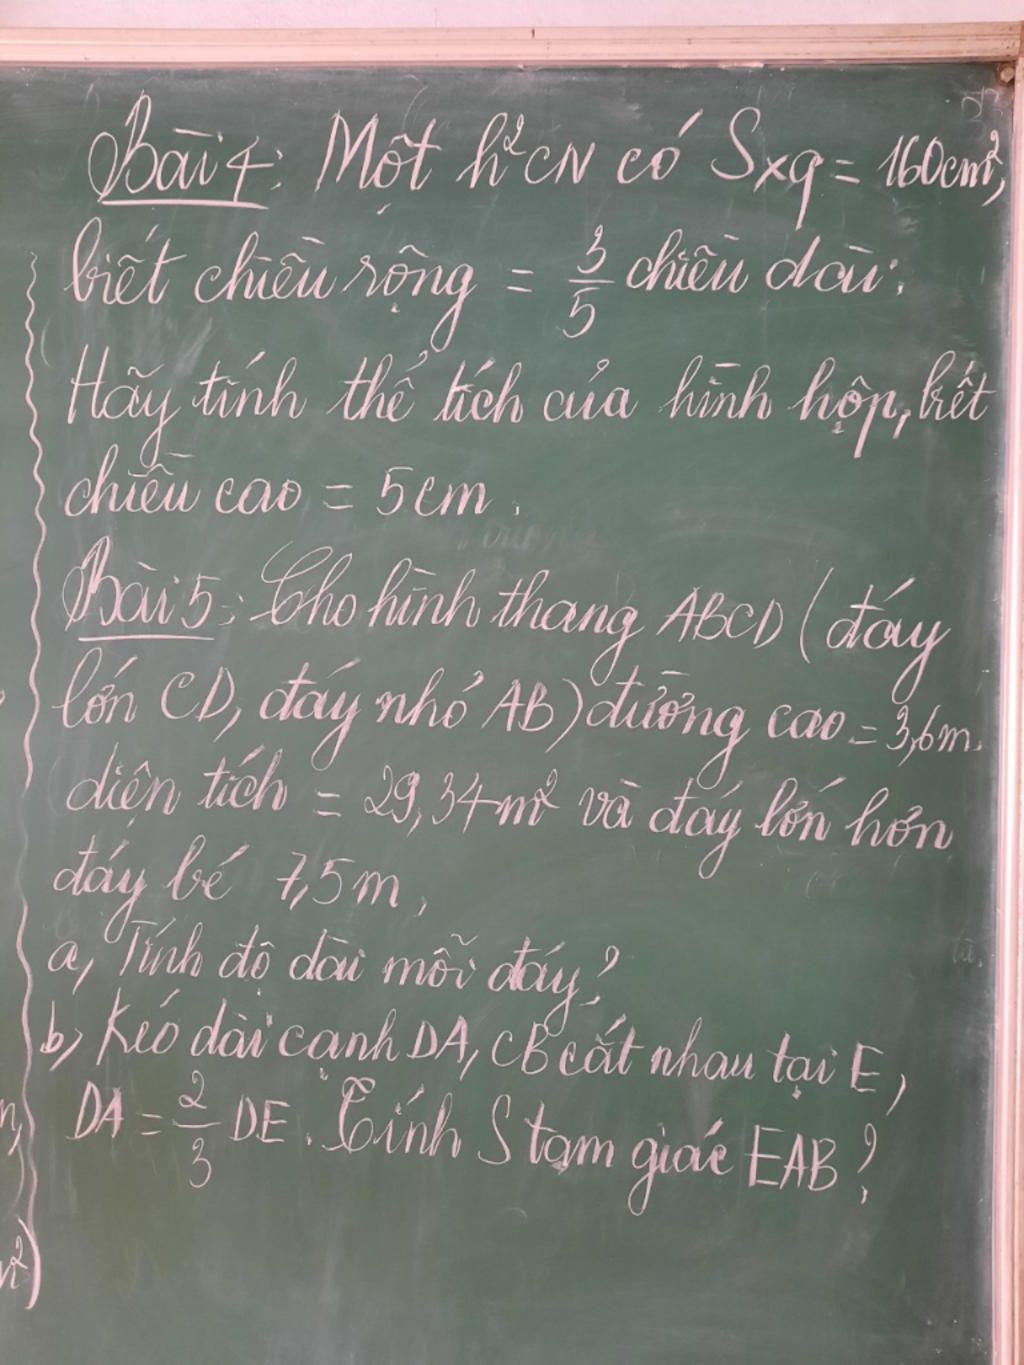 Bài 4: Một h²CN có Sxq = 160cm²,
biết chiều rộng = 3/5 chiều dài.
Hãy tính thể tích của hình hộp, biết
chiều cao = 5cm.
Bài 5: Cho hình thang ABCD (đáy
lớn CD, đáy nhỏ AB) đường cao = 3,6m.
diện tích = 29,34m² và đáy lớn hơn
đáy bé 7,5m.
a, Tính độ dài mỗi đáy?
b, Kéo dài cạnh DA, CB cắt nhau tại E,
DA = 2/3 DE. Tính S tam giác EAB?